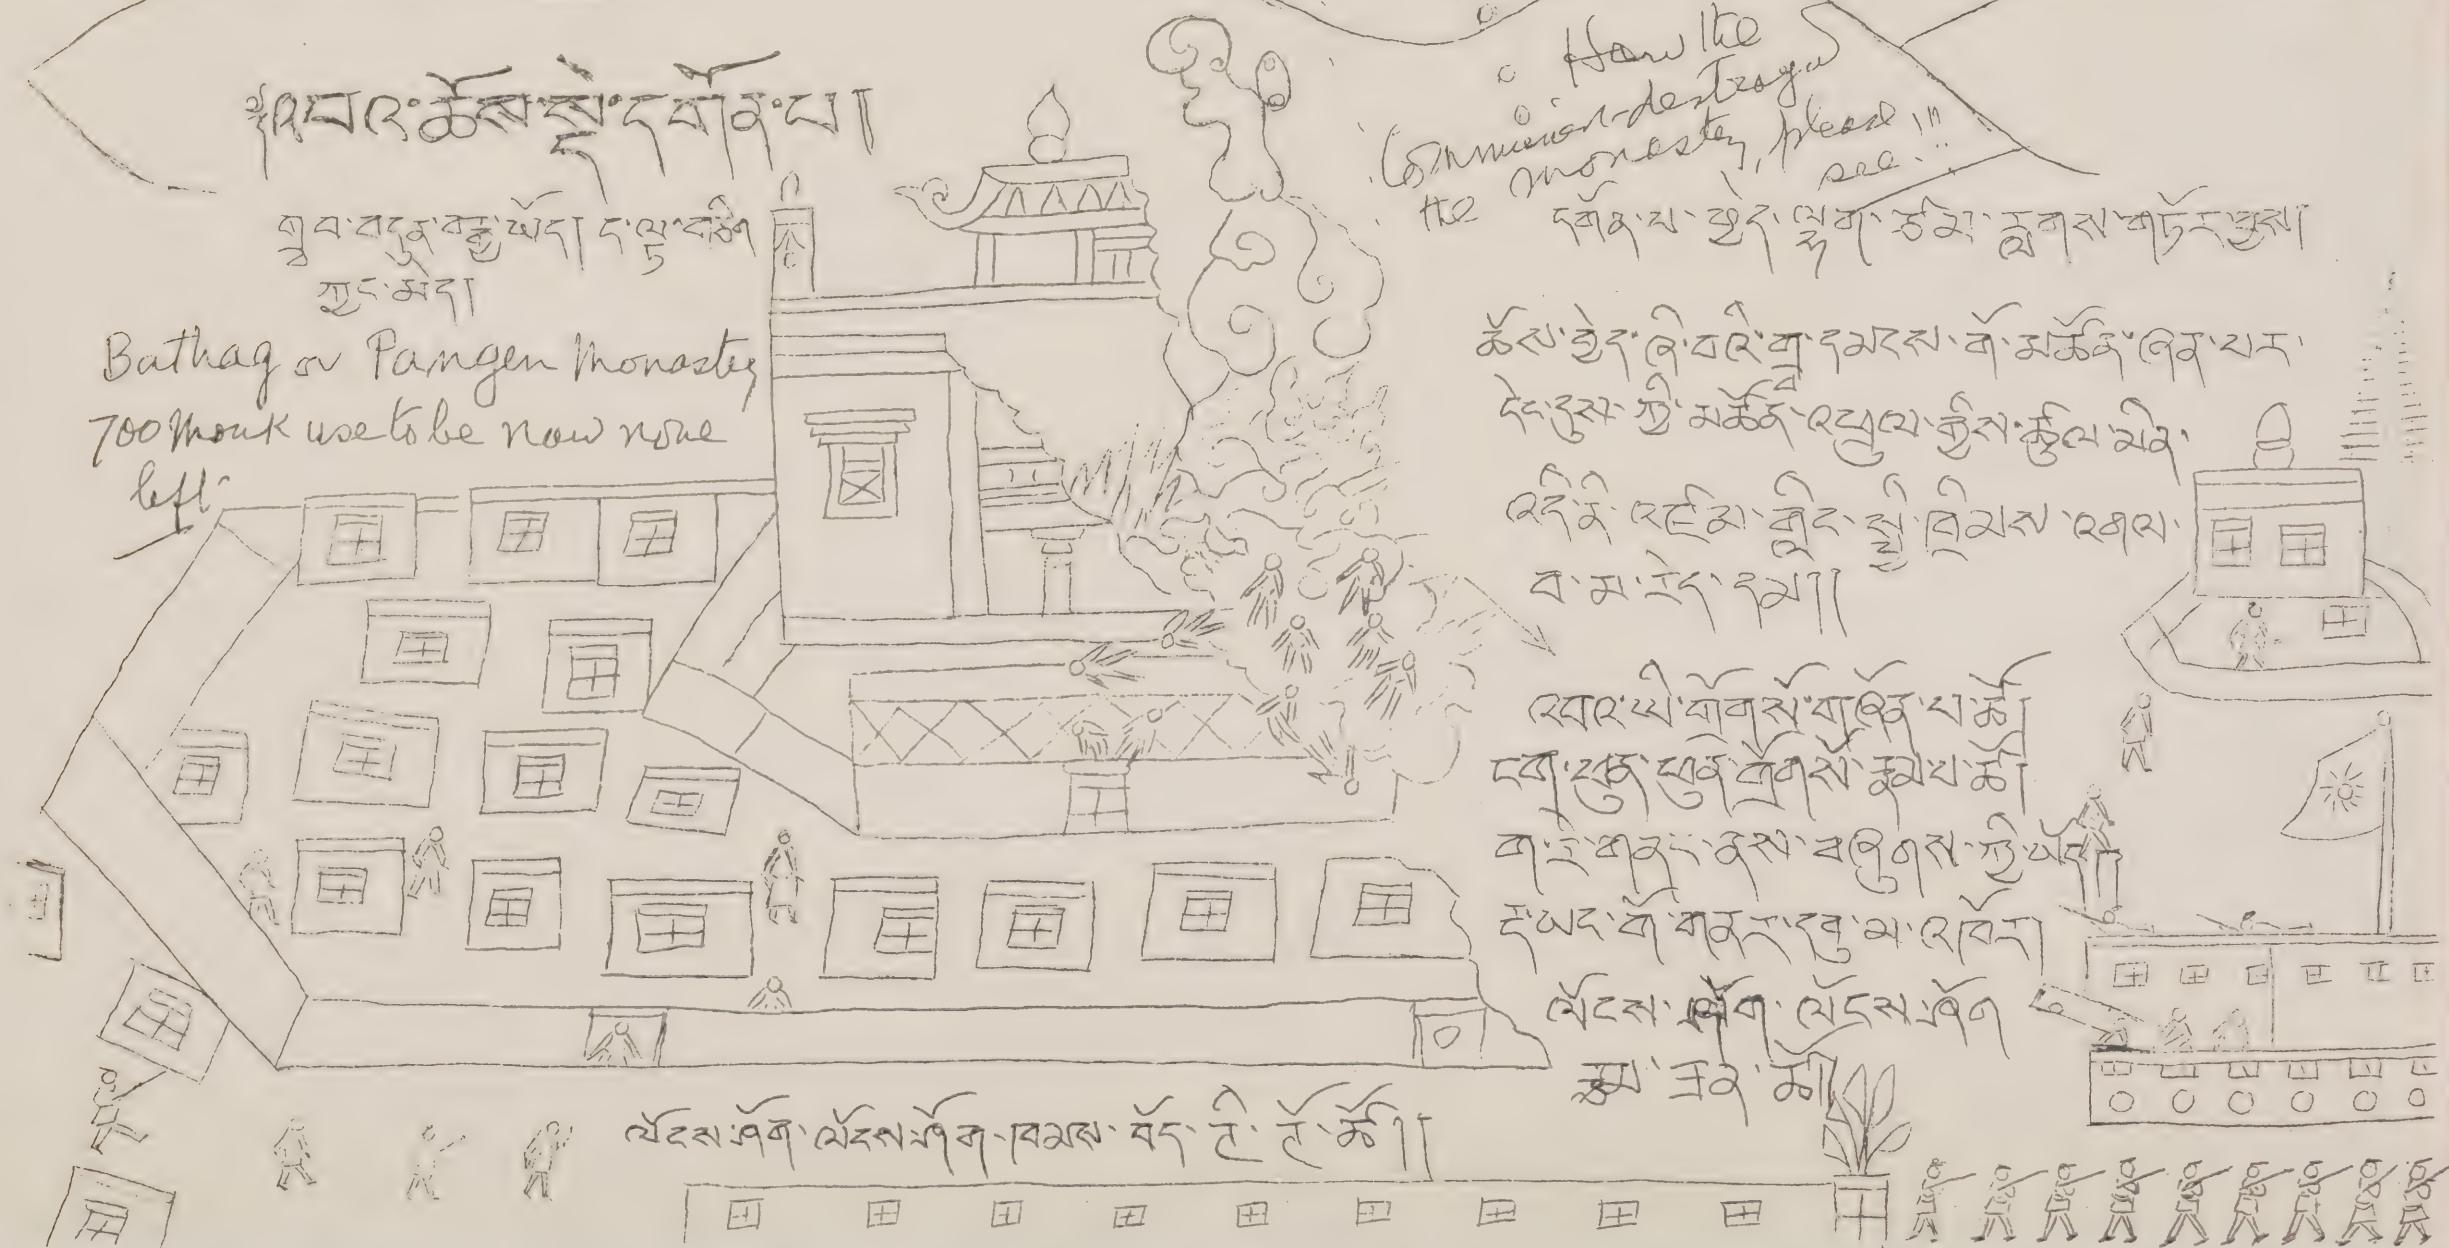 ༄འབའ་ཆོས་སྡེ་དགོན་པ།
གྲྭ་བ་བདུན་བརྒྱ་ཡོད། ད་ལྟ་གཅིག
ཀྱང་མེད།
Bathag or Pangen Monastey
700 Monk use to be now none
left
How the
Communion destroyed
the monastey, please
see!!!
དགོན་པ་ཕྱེད་ལྷག་ཙམ་རླགས་གཏོར་བྱས།
ཆོས་བྱེད་ཞི་བའི་གྲྭ་དམངས་གོ་མཚོན་ཞན་པར་
དེང་དུས་ཀྱི་མཚོན་འཕྲུལ་གྱིས་ཚུལ་མིན་
འདི་ནི་འཛམ་གླིང་སྤྱི་ཁྲིམས་འགལ་
བ་མ་རེད་དམ།།
འབའ་ཡི་གྲོགས་པོ་གཞོན་པ་ཚོ།
ངག་ཕྲན་ཕྲན་གྲོགས་པོ་རྣམ་པ་ཚོ།
ག་རེ་གནང་ནས་བཞུགས་ཀྱི་ཡོད།།
ད་ཡང་གོ་གནང་དབུ་མ་འཁོར།
ལོངས་ཤོག་ལོངས་ཤོག
རྣམ་ཟན་ཚོ།
ལོངས་ཤོག་ལོངས་ཤོག་ཁམས་བོད་ཇི་ཇོ་ཚོ།།